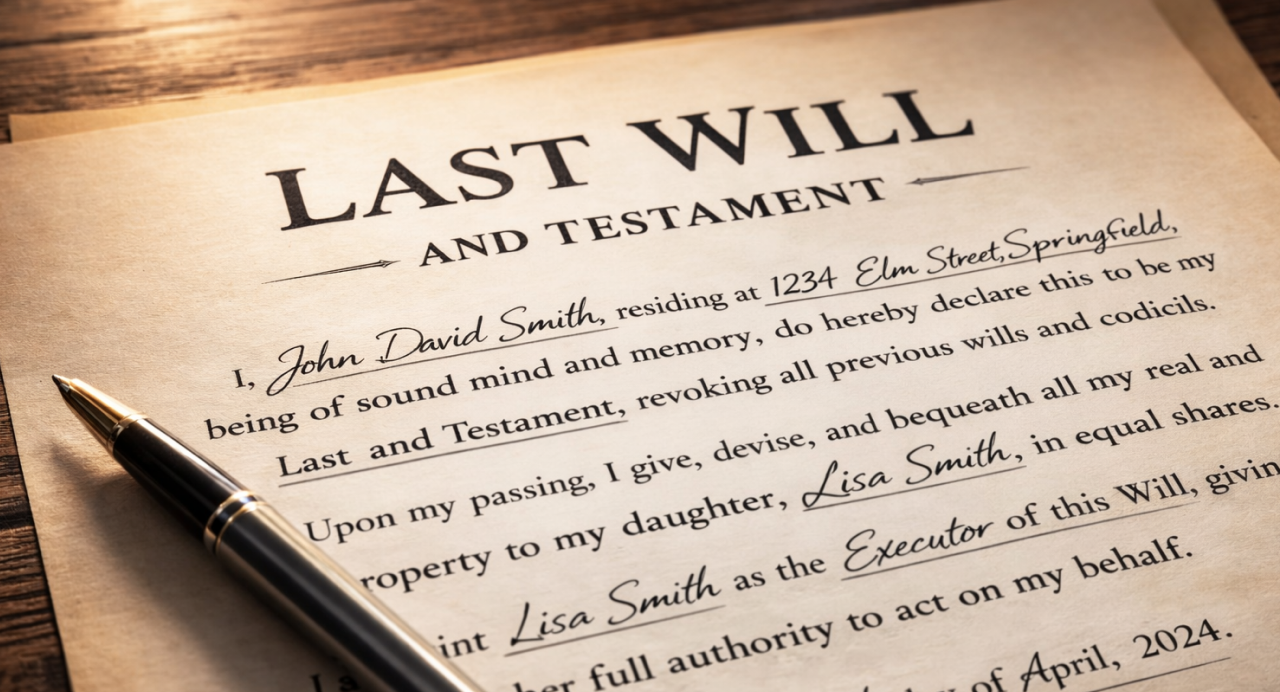 LAST WILL
AND TESTAMENT
I, John David Smith, residing at 1234 Elm Street, Springfield,
being of sound mind and memory, do hereby declare this to be my
Last and Testament, revoking all previous wills and codicils.
Upon my passing, I give, devise, and bequeath all my real and
roperty to my daughter, Lisa Smith, in equal shares.
int Lisa Smith as the Executor of this Will, givin
her full authority to act on my behalf.
of April, 2024.